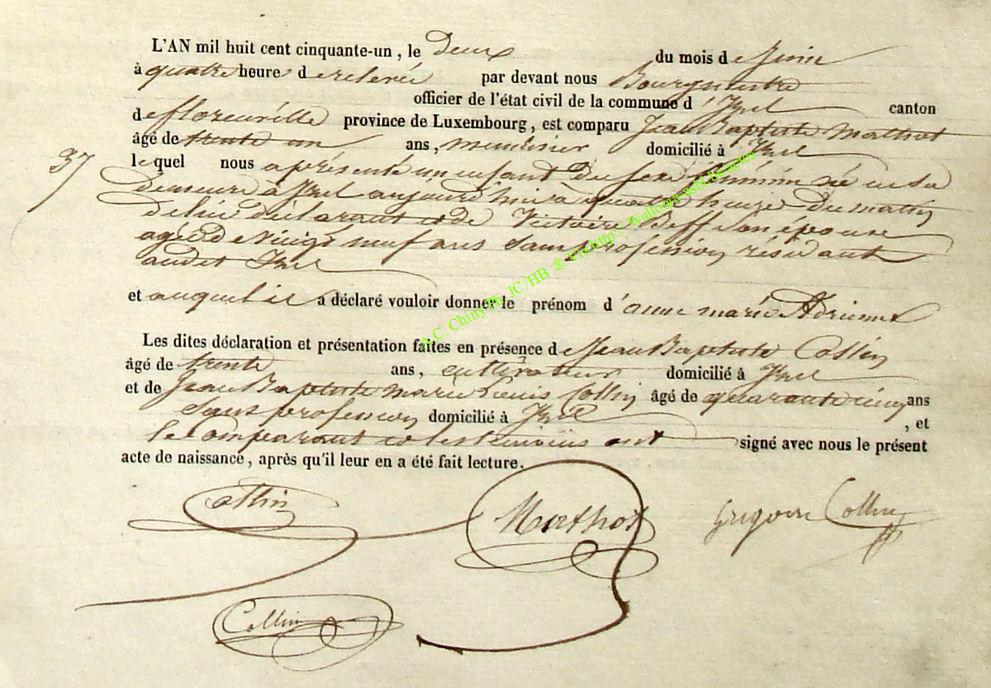 L'AN mil huit cent cinquante-un, le Deux du mois de Juin
à quatre heure de relevée par devant nous Bourgmestre
officier de l'état civil de la commune d'Izel canton
de florenville province de Luxembourg, est comparu Jean Baptiste Mathot
âgé de trente un ans, menuisier domicilié à Izel
37
lequel nous a présenté un enfant Du sexe féminin né en sa
demeure à Izel aujourd'hui à quatre heures Du matin
de lui déclarant et de Victoire son épouse
agée de Vingt neuf ans Sans profession résidant
audit Izel
et auquel il a déclaré vouloir donner le prénom d'anne marie Adrienne
Les dites déclaration et présentation faites en présence de Jean Baptiste Collin
âgé de trente ans, cultivateur domicilié à Izel
et de Jean Baptiste marie Louis Collin âgé de quarante cinq ans
Sans profession domicilié à Izel, et
le Comparant et les témoins ont signé avec nous le présent
acte de naissance, après qu'il leur en a été fait lecture.
Collin Mathot Grégoire Collin
Collin